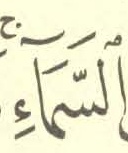 ٱلسَّمَآءِ ۚ